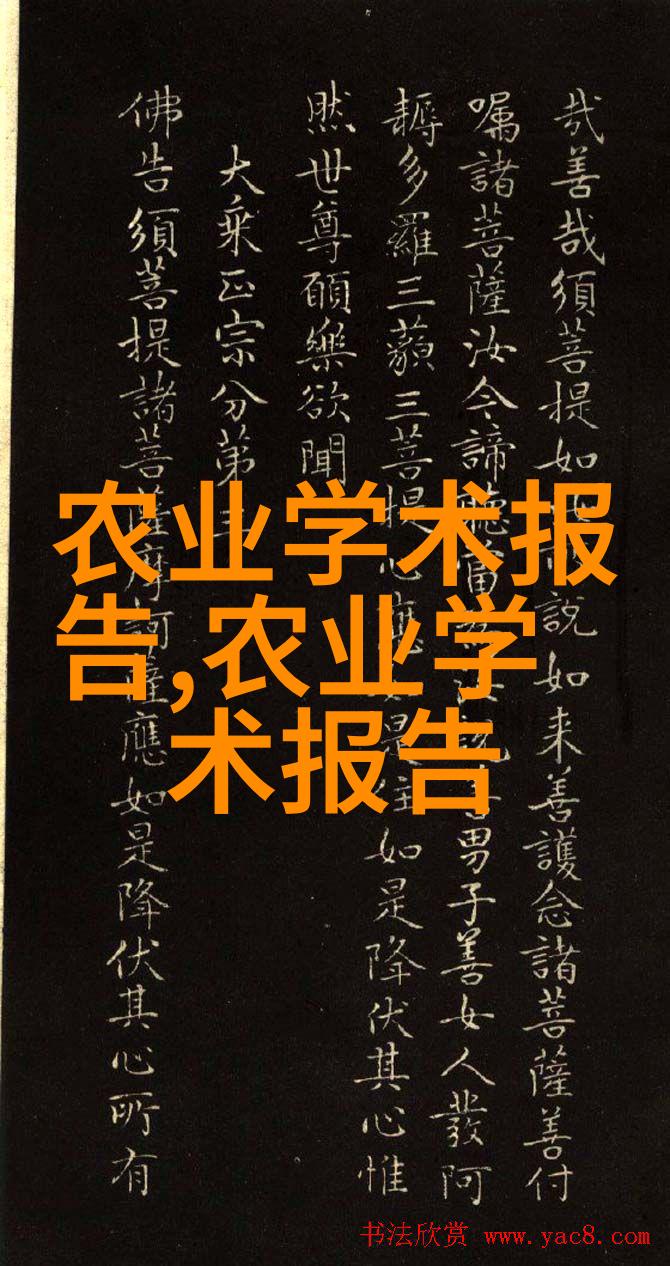 哉善哉須菩提如說如来善護念諸菩薩善付
囑諸菩薩汝今諦聽當說善男子善女人發阿
耨多羅三藐三菩提心應是住如是降伏其心惟
然世尊願樂欲聞
大乘正宗分第三
佛告須菩提諸菩薩摩訶薩應如是降伏其心所有
农业学术报
告,农业学
术报告
书法欣赏 www.yac8.com